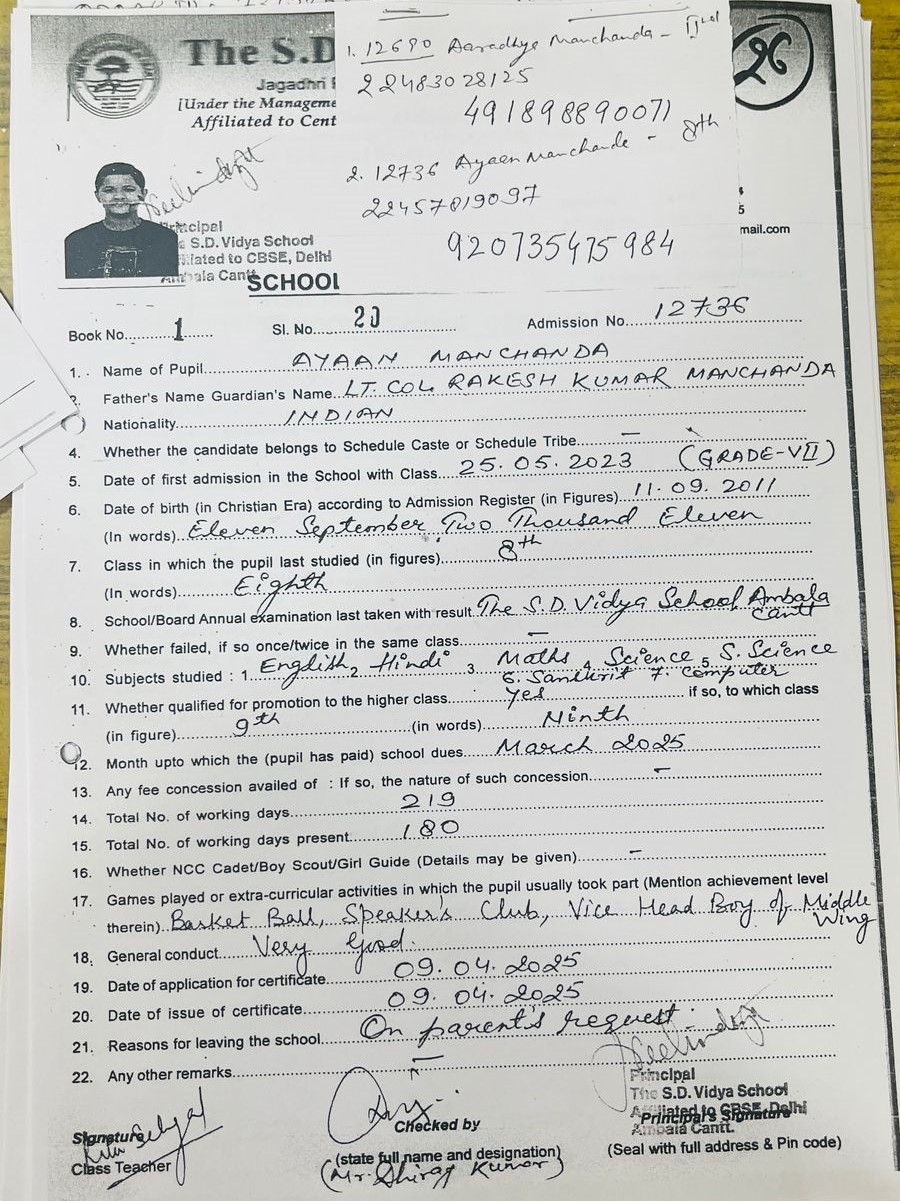 The S.D
Jagadhri
[Under the Manageme
Affiliated to Cent
1. 12690 Aaradhye Manchanda -
22483028125
491898890071
2. 12736 Ayaen Manchande - 8th
22457819097
920735475984
26
mail.com
Principal
S.D. Vidya School
iliated to CBSE, Delhi
Ambala Cantt.
SCHOOL
Book No. 1 Sl. No. 20 Admission No. 12736
1. Name of Pupil AYAAN MANCHANDA
2. Father's Name Guardian's Name LT. COL RAKESH KUMAR MANCHANDA
Nationality INDIAN
4. Whether the candidate belongs to Schedule Caste or Schedule Tribe —
5. Date of first admission in the School with Class 25.05.2023 (GRADE-VII)
6. Date of birth (in Christian Era) according to Admission Register (in Figures) 11.09.2011
(In words) Eleven September Two Thousand Eleven
7. Class in which the pupil last studied (in figures) 8th
(In words) Eighth
8. School/Board Annual examination last taken with result The S.D. Vidya School Ambala Cantt
9. Whether failed, if so once/twice in the same class —
10. Subjects studied : 1. English 2. Hindi 3. Maths 4. Science 5. S. Science
6. Sanskrit 7. Computer
11. Whether qualified for promotion to the higher class Yes if so, to which class
(in figure) 9th (in words) Ninth
12. Month upto which the (pupil has paid) school dues March 2025
13. Any fee concession availed of : If so, the nature of such concession -
14. Total No. of working days 219
15. Total No. of working days present 180
16. Whether NCC Cadet/Boy Scout/Girl Guide (Details may be given) -
17. Games played or extra-curricular activities in which the pupil usually took part (Mention achievement level
therein) Basket Ball, Speaker's Club, Vice Head Boy of Middle Wing
18. General conduct Very Good.
19. Date of application for certificate 09.04.2025
20. Date of issue of certificate 09.04.2025
21. Reasons for leaving the school On parent's request
22. Any other remarks —
Principal
The S.D. Vidya School
Affiliated to CBSE, Delhi
Principal's Signature
Ambala Cantt.
Signature
Class Teacher
Checked by
(state full name and designation)
(Mr. Dhiraj Kumar)
(Seal with full address & Pin code)